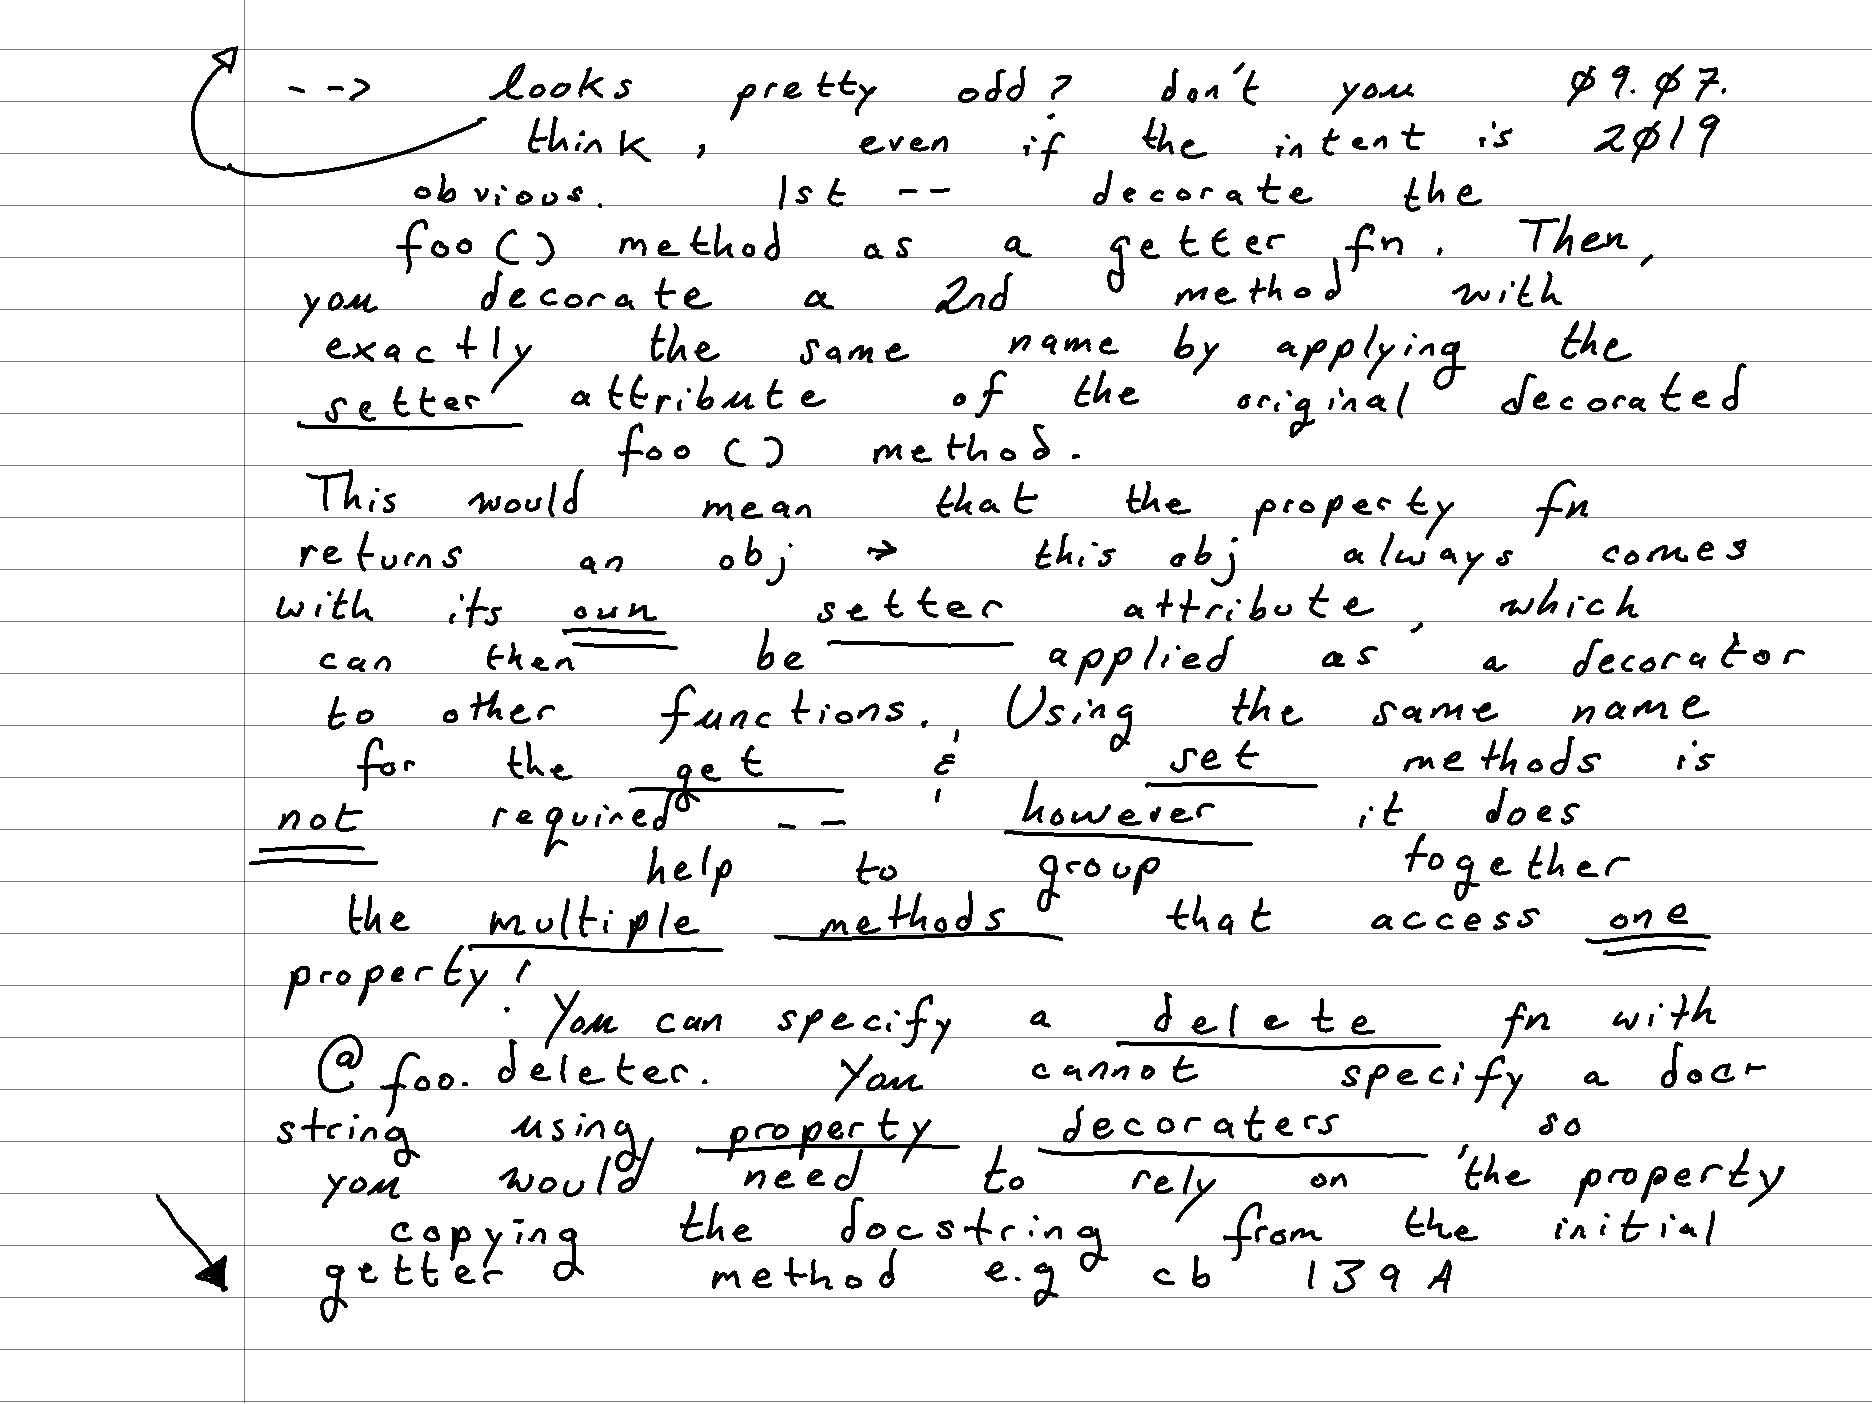 --> looks pretty odd? don't you ø9.ø7.
think, even if the intent is 2ø19
obvious. 1st -- decorate the
foo() method as a getter fn. Then,
you decorate a 2nd method with
exactly the same name by applying the
setter attribute of the original decorated
foo() method.
This would mean that the property fn
returns an obj → this obj always comes
with its own setter attribute, which
can then be applied as a decorator
to other functions. Using the same name
for the get & set methods is
not required -- however it does
help to group together
the multiple methods that access one
property!
You can specify a delete fn with
@foo.deleter. You cannot specify a doc-
string using property decoraters so
you would need to rely on the property
copying the docstring from the initial
getter method e.g cb 139A